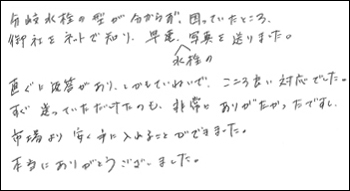 分岐水栓の型が分からず、困っていたところ、
御社をネットで知り、早速、水栓の写真を送りました。
直ぐに返答があり、しかもていねいで、こころ良い対応でした。
すぐ送っていただけたのも、非常にありがたかったですし、
市場より安く手に入れることができました。
本当にありがとうございました。